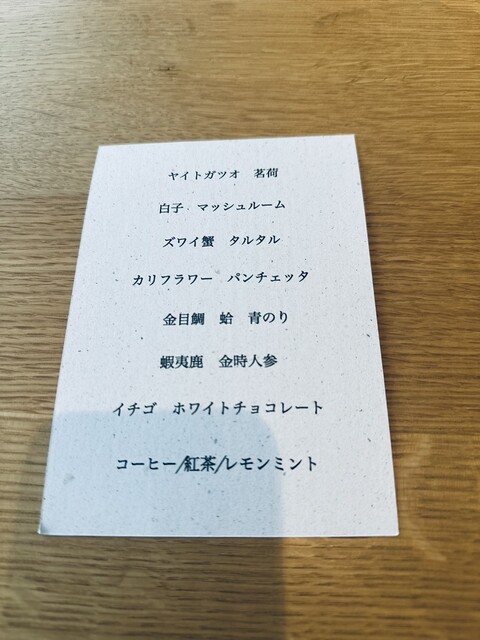 ヤイトガツオ　茗荷
白子　マッシュルーム
ズワイ蟹　タルタル
カリフラワー　パンチェッタ
金目鯛　蛤　青のり
蝦夷鹿　金時人参
イチゴ　ホワイトチョコレート
コーヒー/紅茶/レモンミント